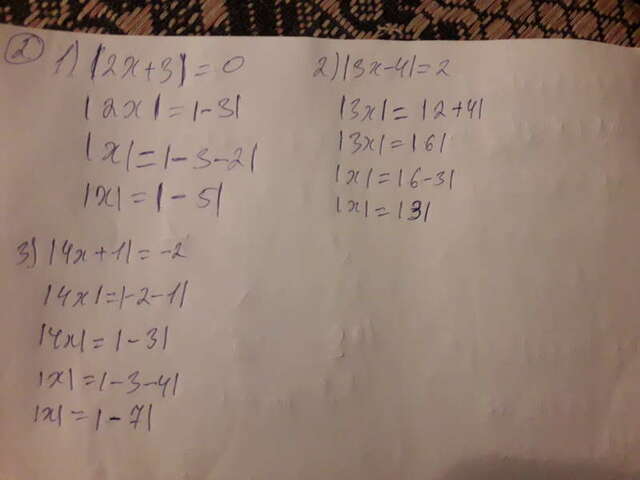 ② 1) |2x+3|=0
|2x|=|-3|
|x|=|-3-2|
|x|=|-5|
2) |3x-4|=2
|3x|=|2+4|
|3x|=|6|
|x|=|6-3|
|x|=|3|
3) |4x+1|=-2
|4x|=|-2-1|
|4x|=|-3|
|x|=|-3-4|
|x|=|-7|